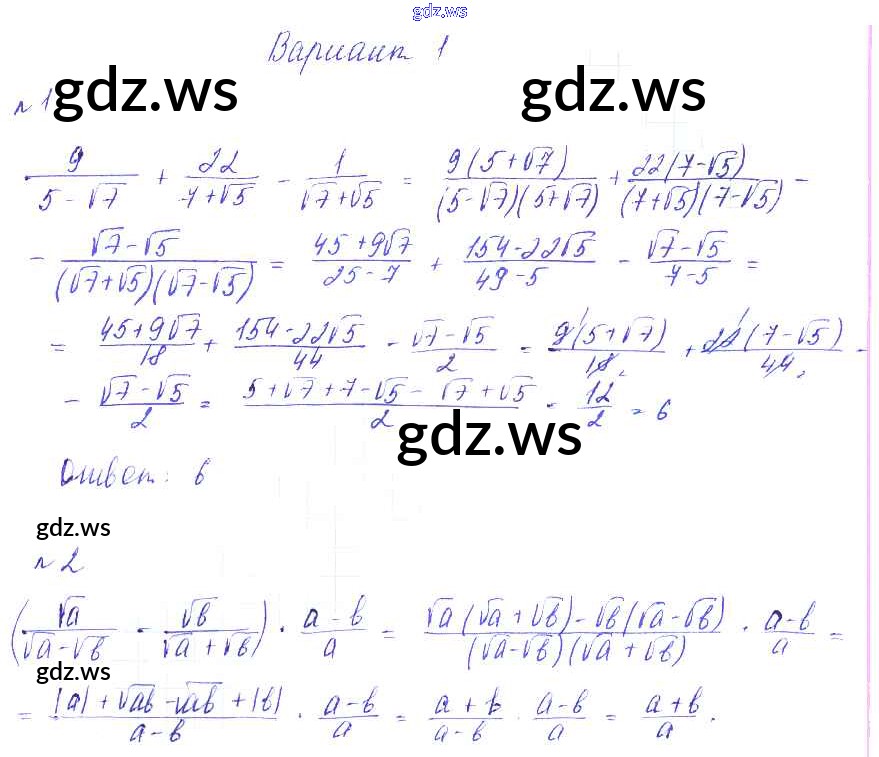 gdz.ws
Вариант 1
gdz.ws gdz.ws
№ 1
9/(5-√7) + 22/(7+√5) - 1/(√7+√5) = 9(5+√7)/((5-√7)(5+√7)) + 22(7-√5)/((7+√5)(7-√5)) -
- (√7-√5)/((√7+√5)(√7-√5)) = (45+9√7)/(25-7) + (154-22√5)/(49-5) - (√7-√5)/(7-5) =
= (45+9√7)/18 + (154-22√5)/44 - (√7-√5)/2 = 9(5+√7)/18 + 22(7-√5)/44 -
- (√7-√5)/2 = (5+√7+7-√5-√7+√5)/2 = 12/2 = 6
gdz.ws
Ответ: 6
gdz.ws
№ 2
(√a/(√a-√b) - √b/(√a+√b)) · (a-b)/a = (√a(√a+√b)-√b(√a-√b))/((√a-√b)(√a+√b)) · (a-b)/a =
gdz.ws
= (|a|+√ab-√ab+|b|)/(a-b) · (a-b)/a = (a+b)/(a-b) · (a-b)/a = (a+b)/a.